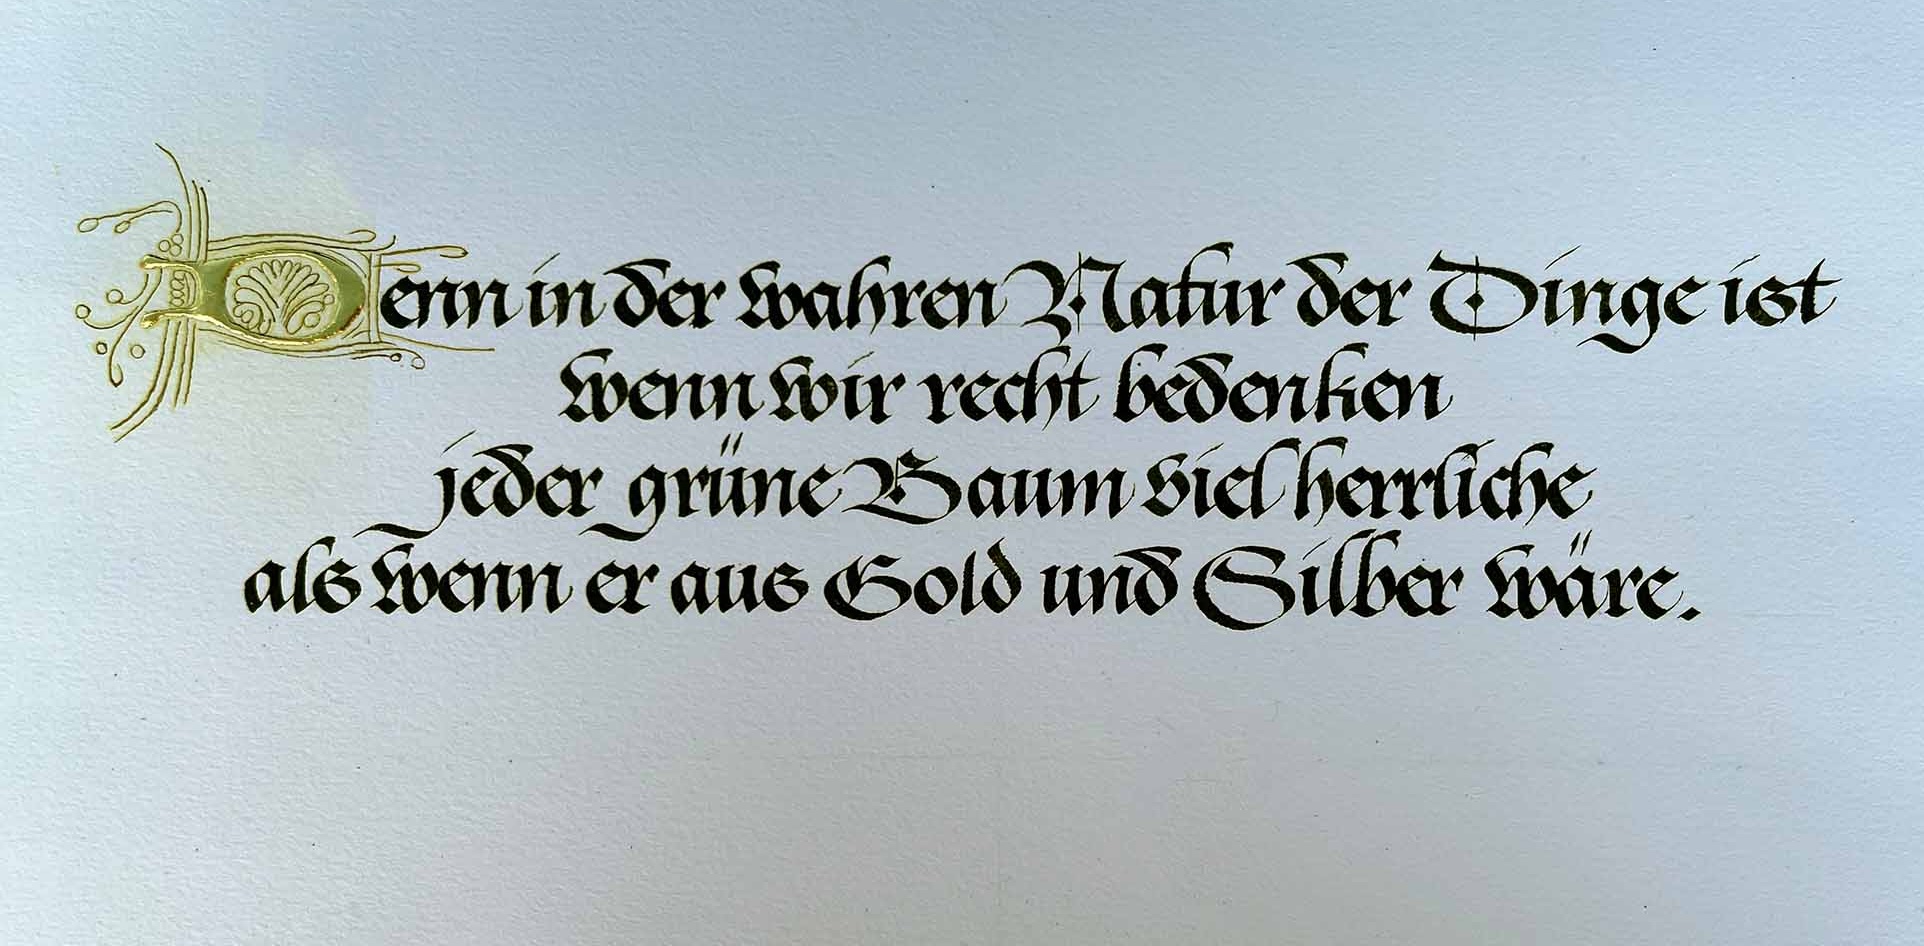 Denn in der wahren Natur der Dinge ist
wenn wir recht bedenken
jeder grüne Baum viel herrliche
als wenn er aus Gold und Silber wäre.